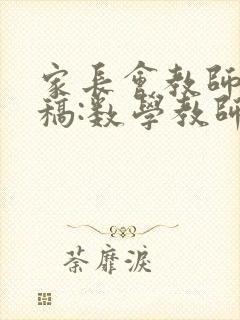 家長會教師
稿:數學教師
荼靡淚